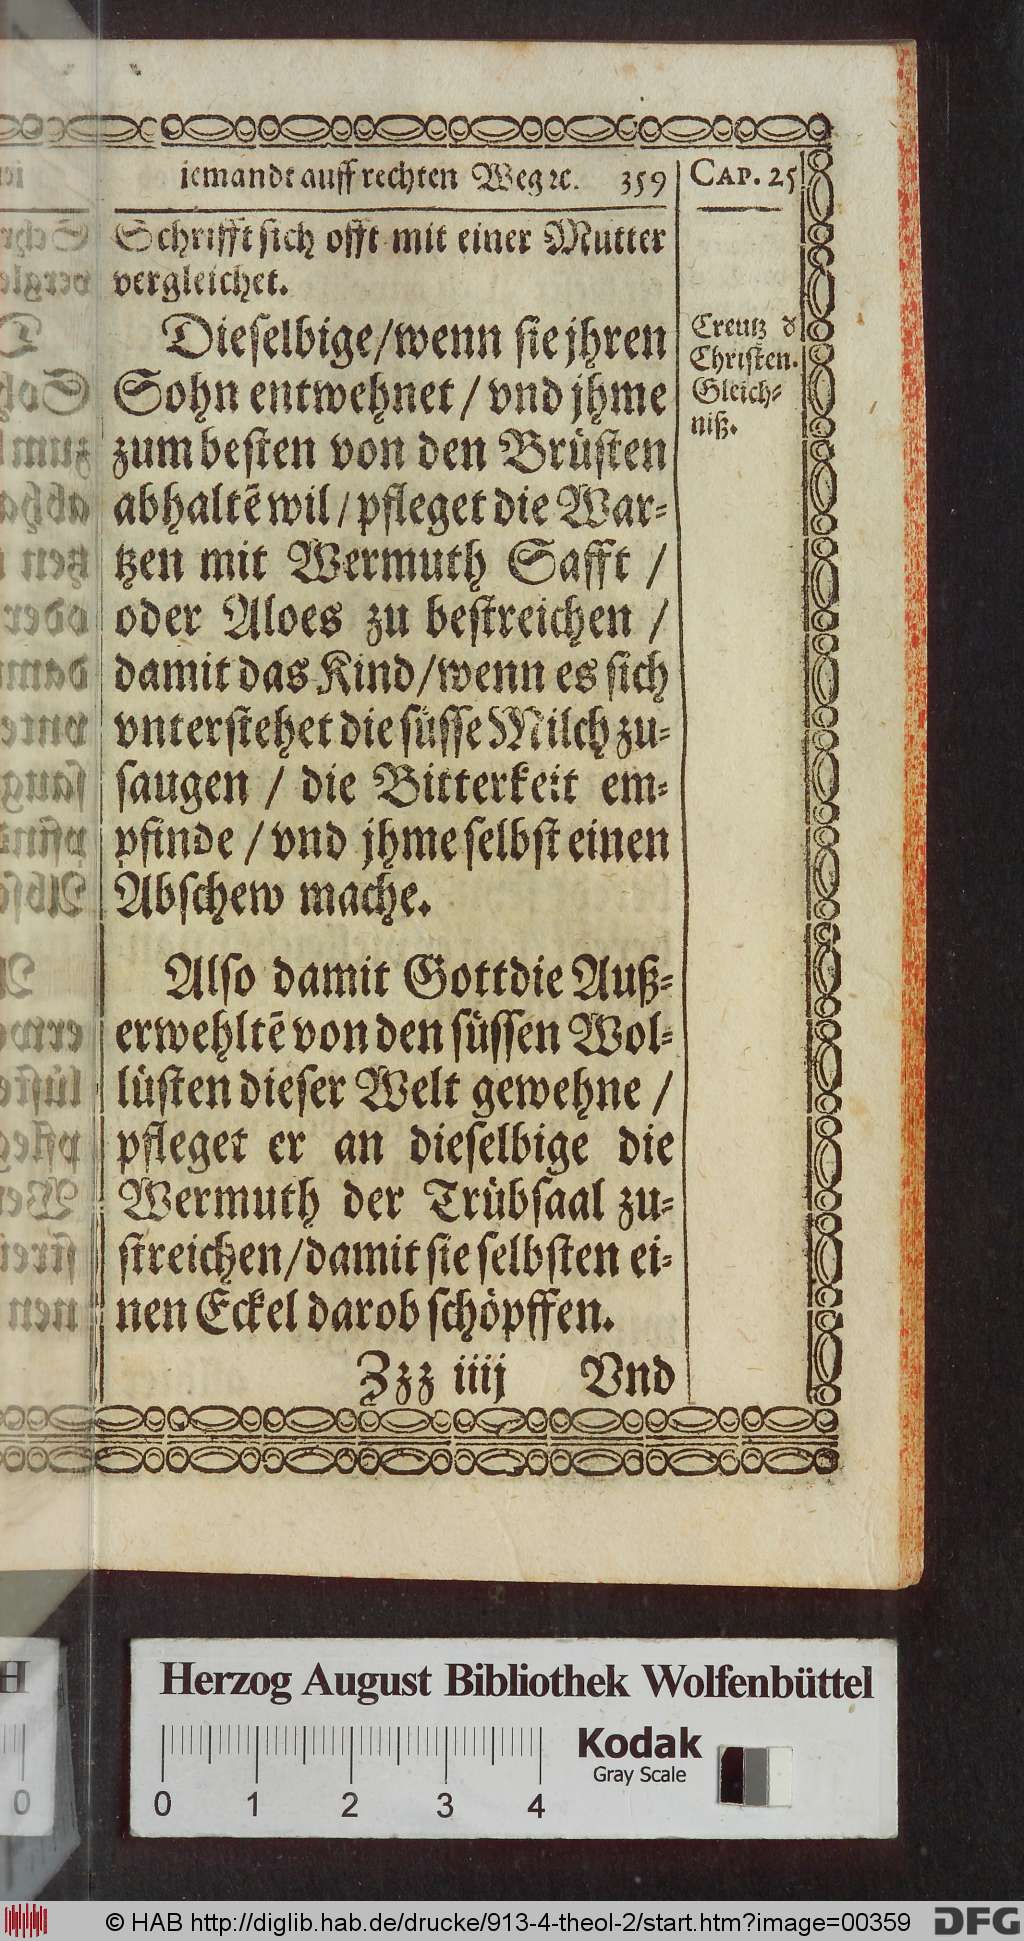 iemandt auff rechten Weg ꝛc. 359
CAP. 25
Schrifft sich offt mit einer Mutter
vergleichet.
Dieselbige/wenn sie jhren
Sohn entwehnet / vnd jhme
zum besten von den Brüsten
abhaltẽ wil / pfleget die War⸗
tzen mit Wermuth Safft /
oder Aloes zu bestreichen /
damit das Kind/wenn es sich
vnterstehet die süsse Milch zu⸗
saugen / die Bitterkeit em⸗
pfinde / vnd jhme selbst einen
Abschew mache.
Creutz d
Christen.
Gleich⸗
niß.
Also damit Gott die Auß⸗
erwehltẽ von den süssen Wol⸗
lüsten dieser Welt gewehne /
pfleget er an dieselbige die
Wermuth der Trübsaal zu⸗
streichen/damit sie selbsten ei⸗
nen Eckel darob schöpffen.
Zzz iiij Vnd
Herzog August Bibliothek Wolfenbüttel
Kodak
Gray Scale
0 1 2 3 4
0
H
© HAB http://diglib.hab.de/drucke/913-4-theol-2/start.htm?image=00359
DFG